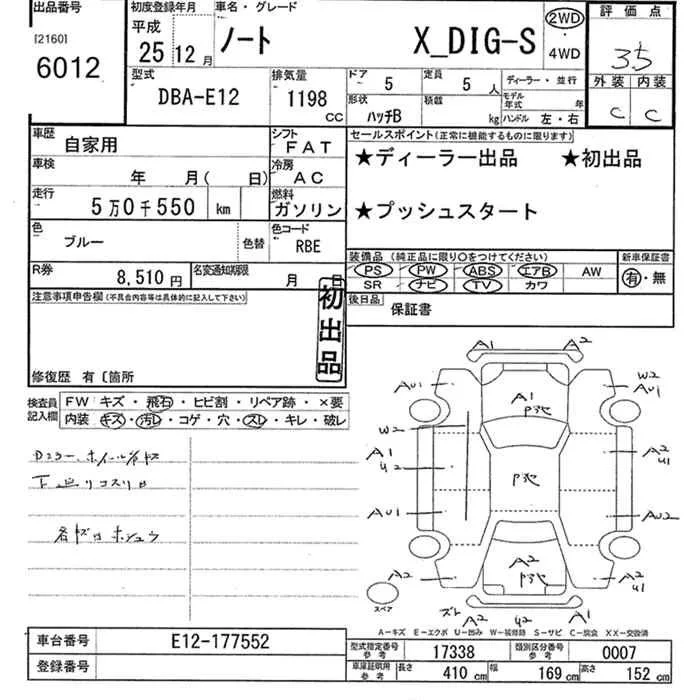 出品番号
[2160]
6012
初度登録年月
平成
25 12 月
車名・グレード
ノート X_DIG-S
2WD
・
4WD
評価点
35
外装 内装
C C
型式
DBA-E12
排気量
1198
CC
ドア
5
定員
5 人
ディーラー・並行
形状
ハッチB
積載
kg
モデル年式 年
ハンドル 左・右
車歴
自家用
シフト
FAT
車検
年 月( 日)
冷房
AC
走行
5万0千550 km
燃料
ガソリン
色
ブルー
色替
色コード
RBE
R券
8,510 円
名変通知期限
月 日
セールスポイント(正常に機能するものに限ります)
★ディーラー出品 ★初出品
★プッシュスタート
装備品(純正品に限り○をつけてください)
新車保証書
PS PW ABS エアB AW
SR ナビ TV カワ
有・無
後日品
保証書
注意事項申告欄(不具合内容等は具体的に記入して下さい)
初出品
修復歴 有〔箇所
検査員記入欄
FW キズ・飛石・ヒビ割・リペア跡・×要
内装 キズ・汚レ・コゲ・穴・スレ・キレ・破レ
下廻リコスリ
A1 A2
AU1
W2
AU1
A1
W2
A1
A2
AU1
AU2
A2
A2
A2
スペア
A2 A1
A-キズ E-エクボ U-凹み W-波修跡 S-サビ C-腐食 XX-交換済
車台番号
E12-177552
登録番号
型式指定番号
参考
17338
類別区分番号
参考
0007
車庫証明用
参考
長さ 410 cm 幅 169 cm 高さ 152 cm